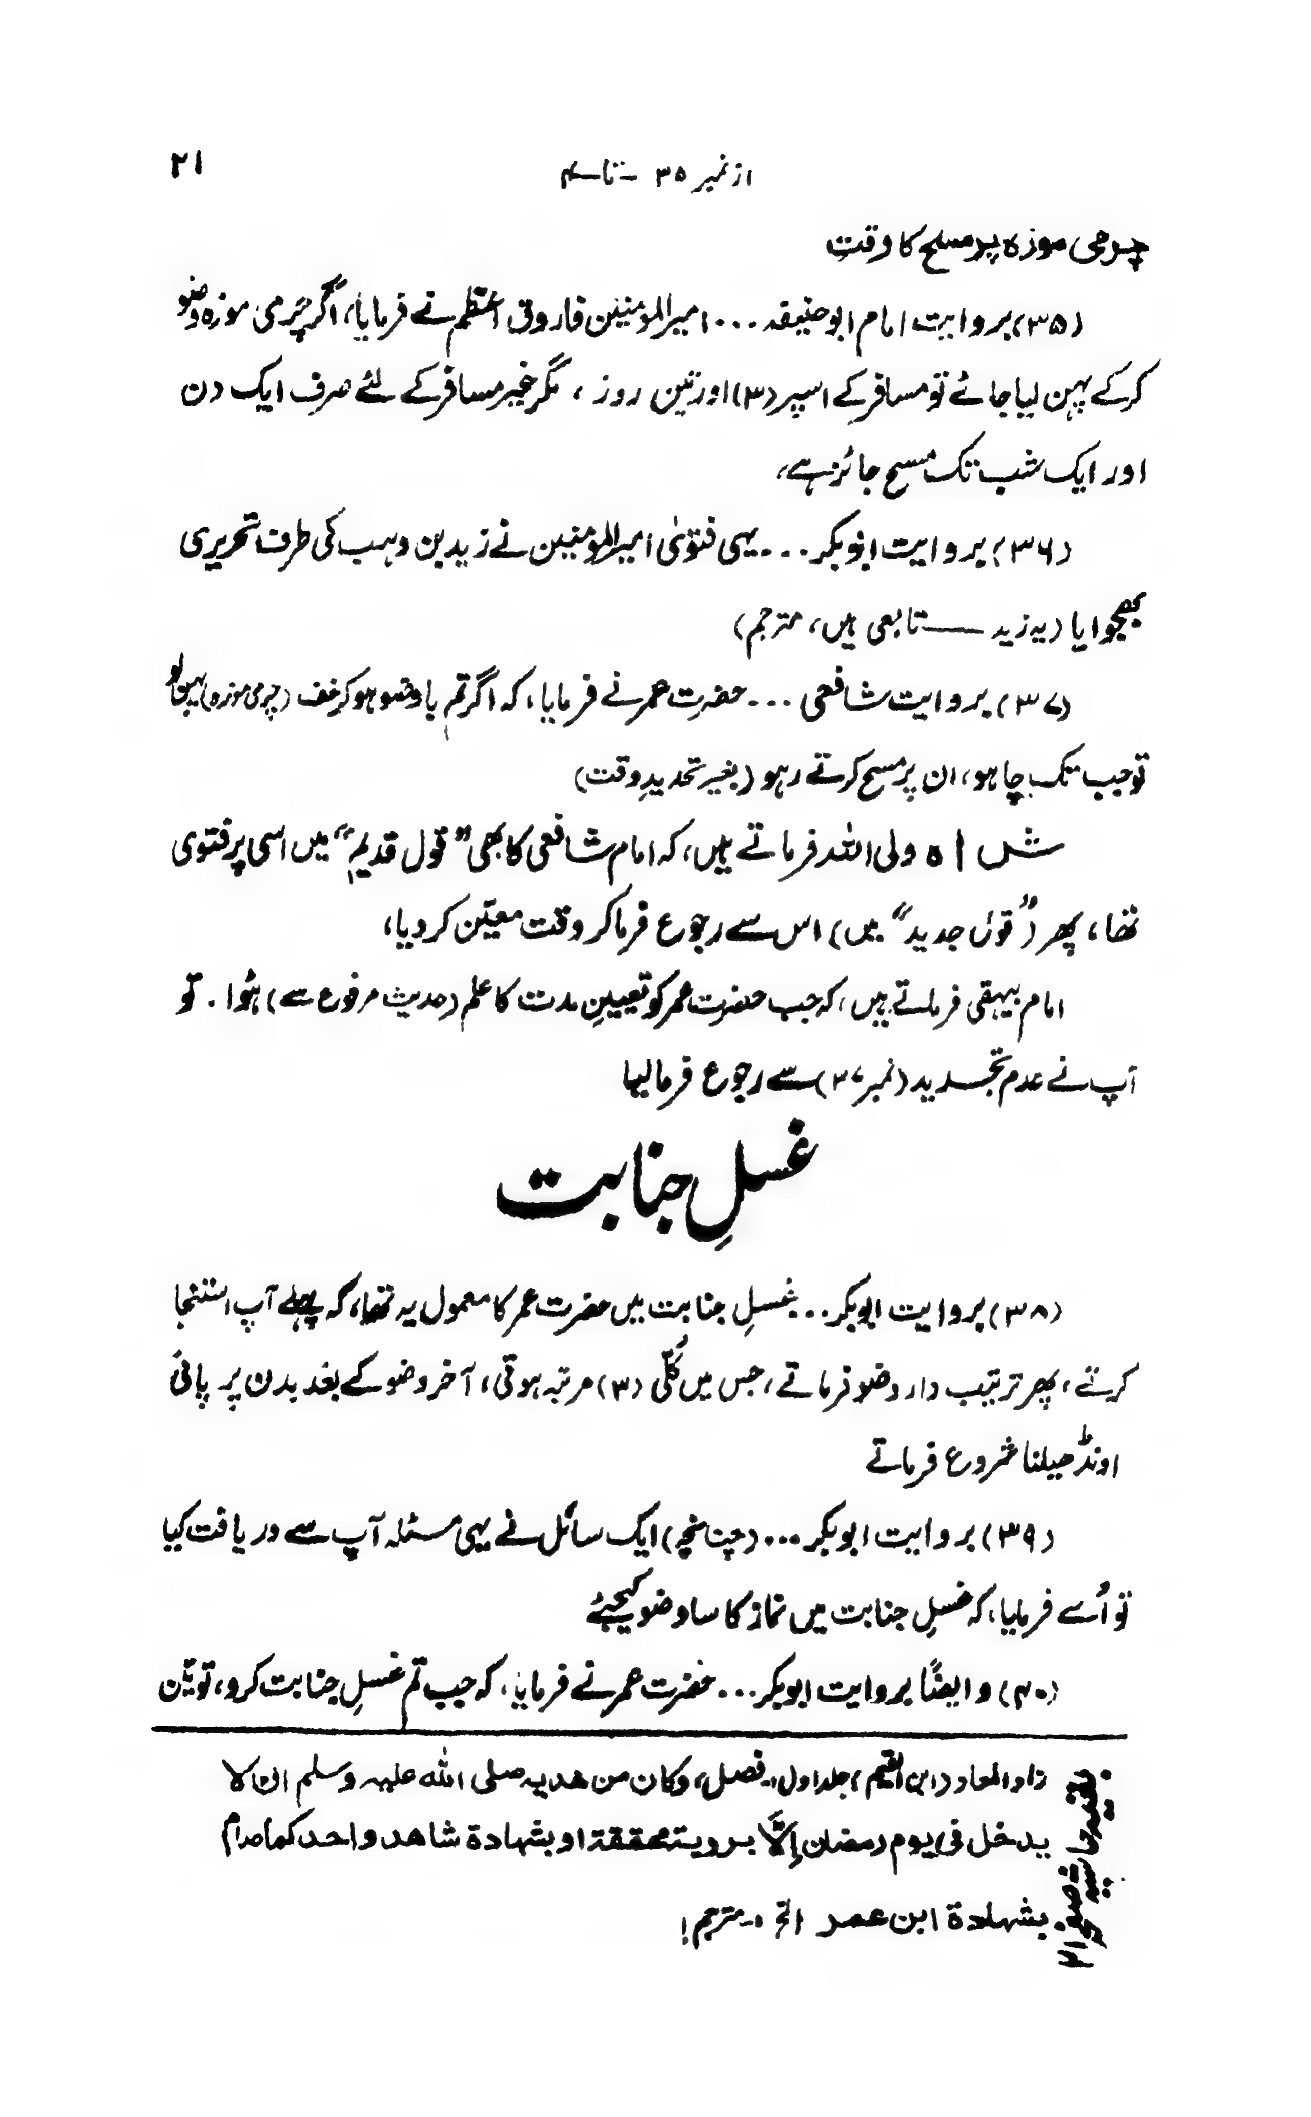 از نمبر ۳۵ - تا - ۴۰
۲۱
چرمی موزہ پر مسح کا وقت
(۳۵) بروایت امام ابو حنیفہ ... امیرالمومنین فاروق اعظم نے فرمایا، اگر چرمی موزہ وضو
کر کے پہن لیا جائے تو مسافر کے اسپر (۳) اور تین روز ، مگر غیر مسافر کے لئے صرف ایک دن
اور ایک شب تک مسح جائز ہے،
(۳۶) بروایت ابوبکر ... یہی فتویٰ امیرالمومنین نے زید بن وہب کی طرف تحریری
بھجوایا (یہ زید ــــ تابعی ہیں، مترجم)
(۳۷) بروایت شافعی ... حضرت عمر نے فرمایا، کہ اگر تم باوضو ہو کر خف (چرمی موزہ) پہن لو
تو جب تک چاہو، ان پر مسح کرتے رہو (بغیر تحدیدِ وقت)
شاہ ولی اللہ فرماتے ہیں، کہ امام شافعی کا بھی ”قول قدیم“ میں اسی پر فتوی
تھا، پھر (”قول جدید“ میں) اس سے رجوع فرما کر وقت معیّن کر دیا،
امام بیہقی فرماتے ہیں، کہ جب حضرت عمر کو تعیینِ مدت کا علم (حدیث مرفوع سے) ہُوا . تو
آپ نے عدم تجدید (نمبر ۳۷) سے رجوع فرما لیا
غسلِ جنابت
(۳۸) بروایت ابوبکر ... غسلِ جنابت میں حضرت عمر کا معمول یہ تھا، کہ پہلے آپ استنجا
کرتے، پھر ترتیب دار وضو فرماتے، جس میں کُلّی (۳) مرتبہ ہوتی، آخر وضو کے بعد بدن پر پانی
اونڈھیلنا شروع فرماتے
(۳۹) بروایت ابوبکر ... (چنانچہ) ایک سائل نے یہی مسئلہ آپ سے دریافت کیا
تو اُسے فرمایا، کہ غسلِ جنابت میں نماز کا سا وضو کیجئے
(۴۰) و ایضًا بروایت ابوبکر ... حضرت عمر نے فرمایا، کہ جب تم غسلِ جنابت کرو، تو تین
بقیہ حاشیہ صفحہ ۲۱
زاد المعاد (ابن القیم) جلد اول، فصل، وکان من ھدیہ صلی اللہ علیہ وسلم ان لا
یدخل فی یوم رمضان اِلّا برویتہ محققۃ او بشہادۃ شاھد واحد کما صام
بشہادۃ ابن عمر الخ - مترجم!